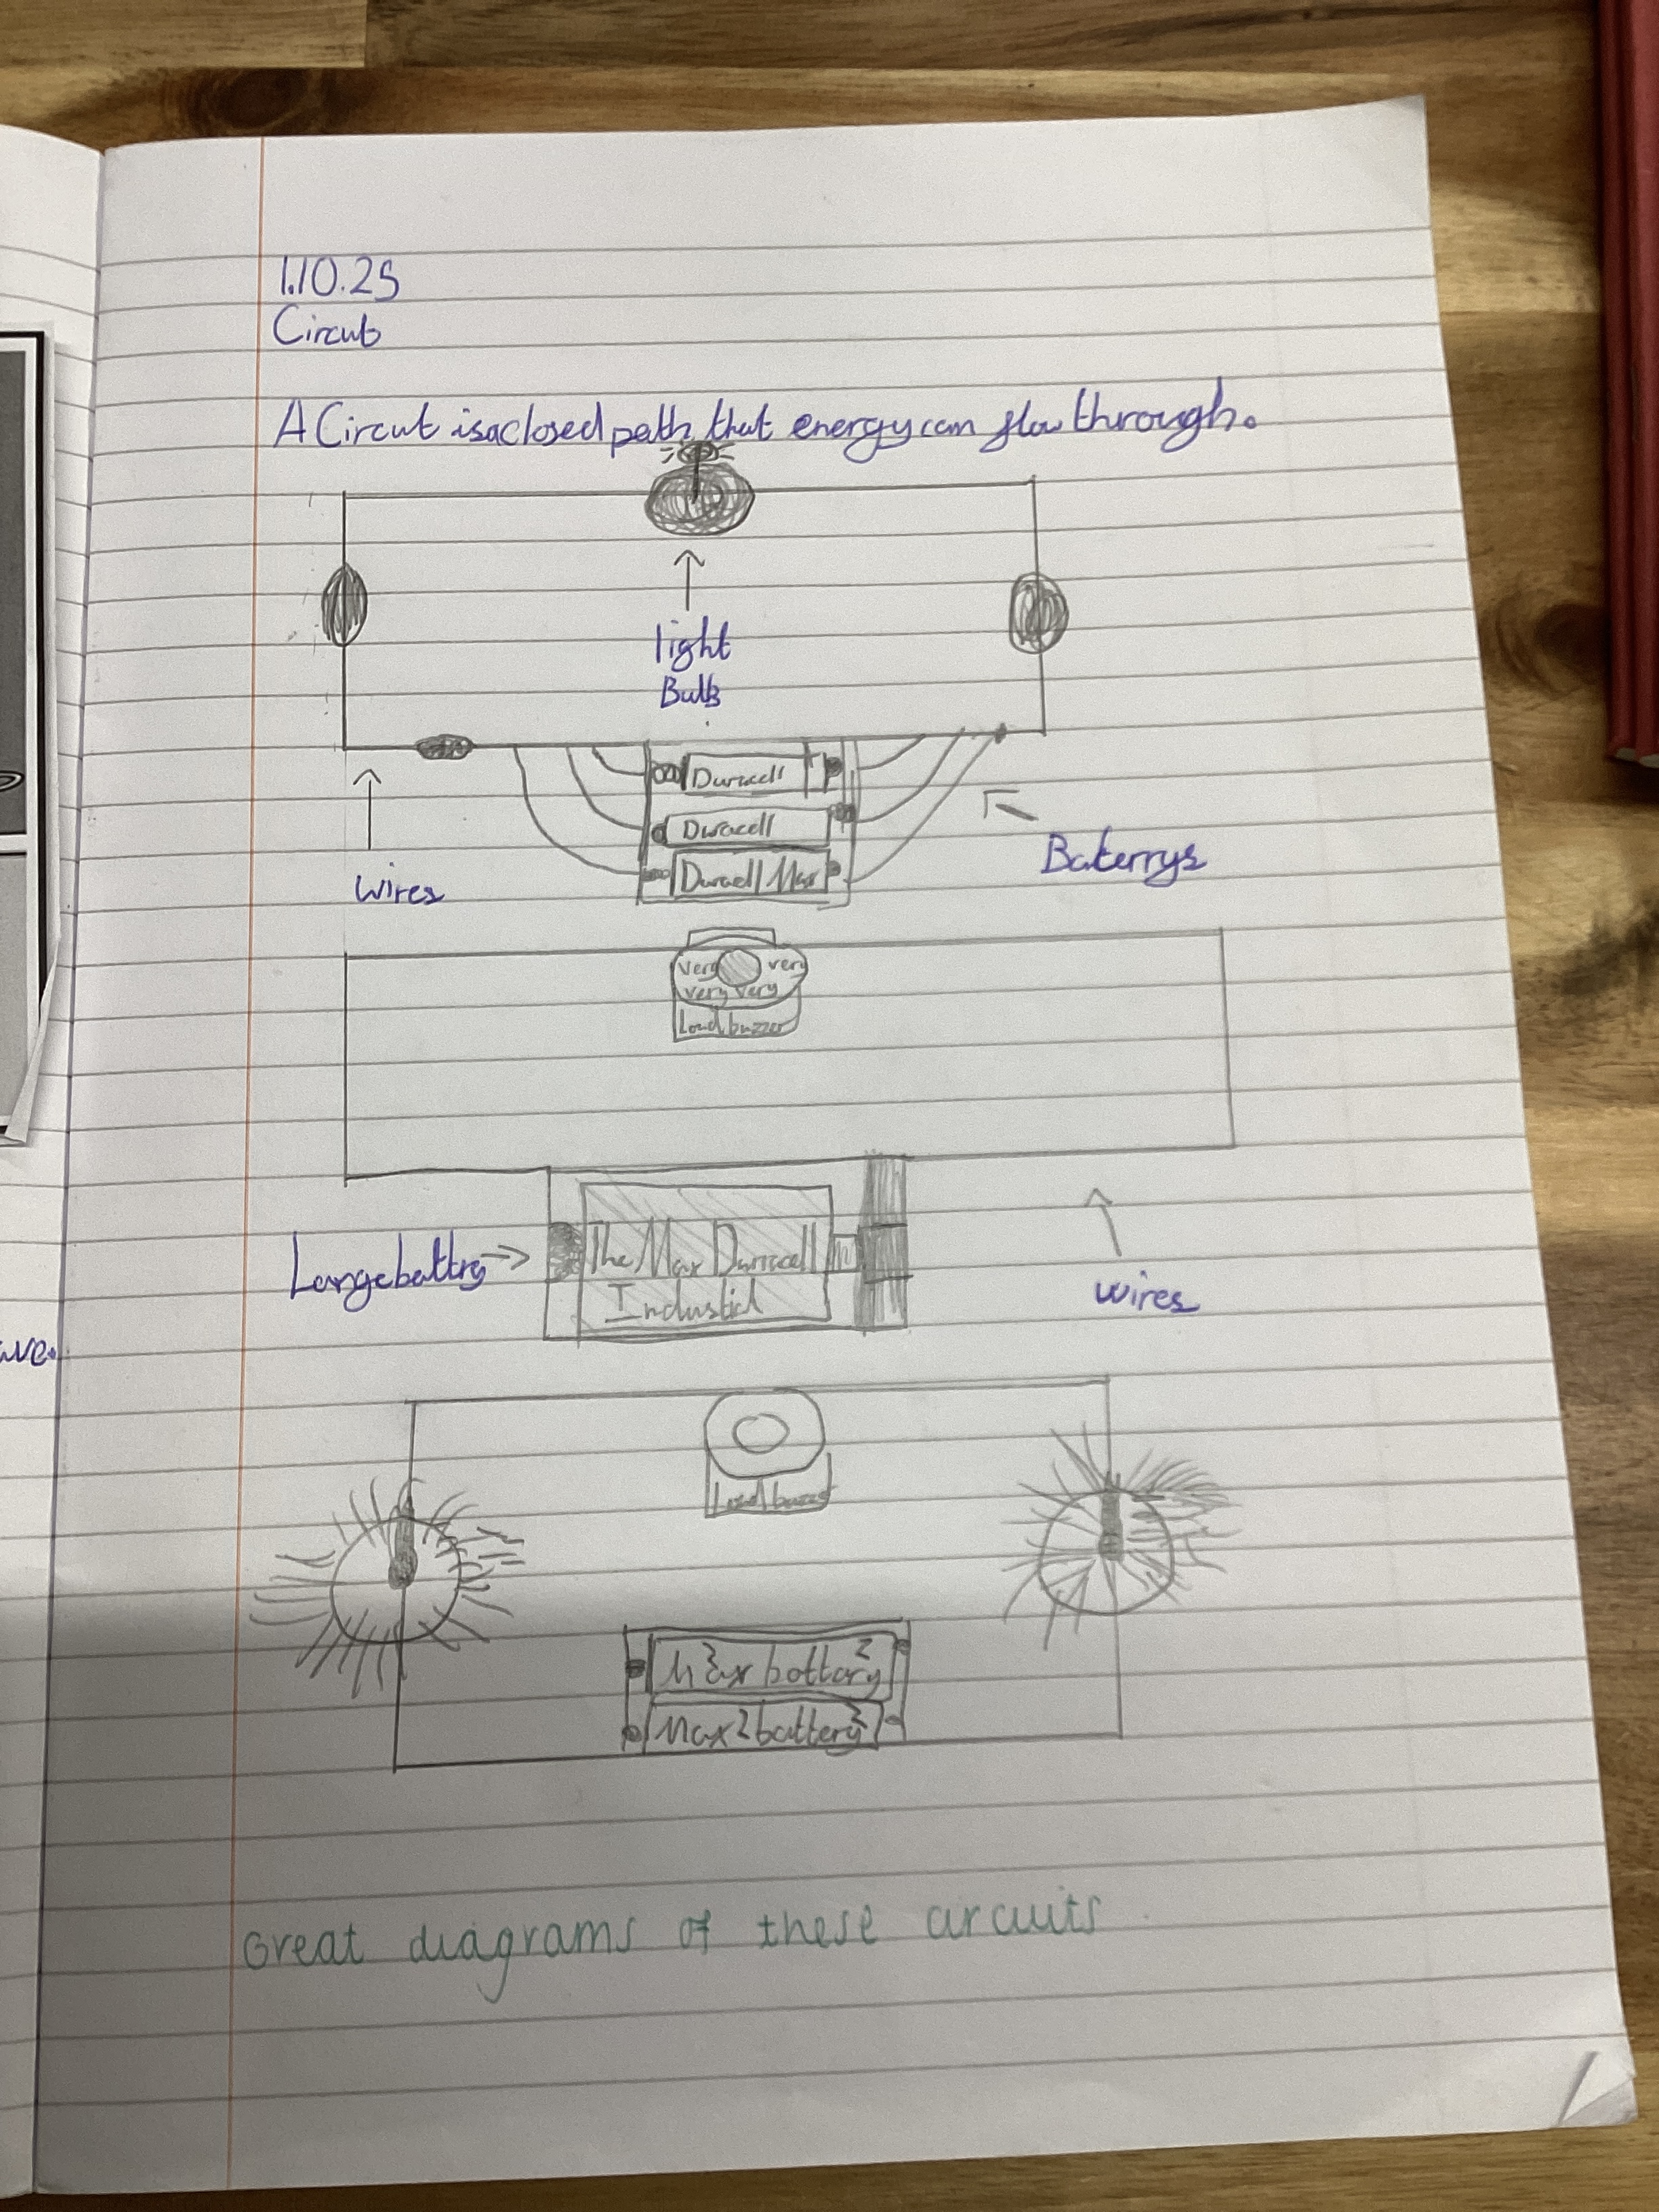 1.10.25
Circut
A Circut is a closed path that energy can flow through.
light
Bulb
Duracell
Duracell
Duracell Max
wires
Baterrys
very very
very very
Loud buzzer
Large battry
The Max Duracell
Industial
wires
Loud buzzer
battery
Max2 battery2
ave.
Great diagrams of these circuits